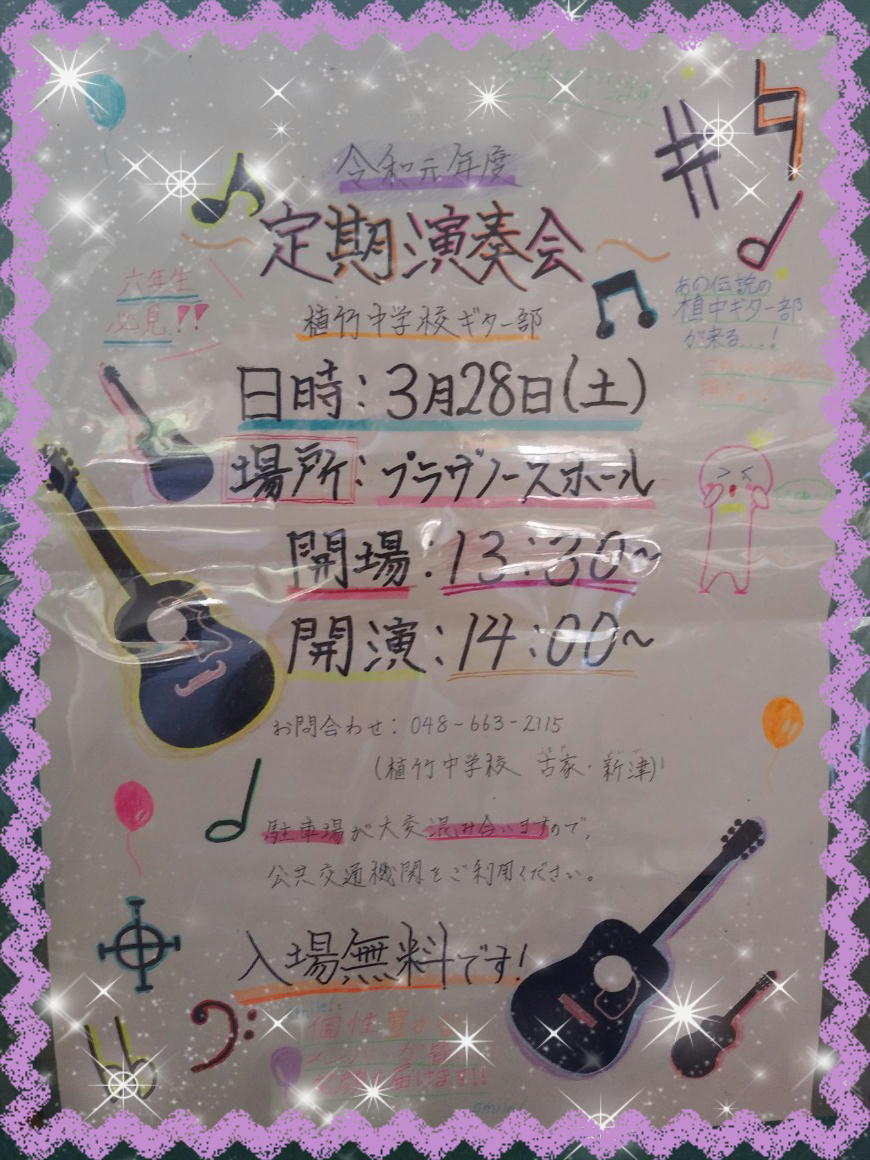 令和元年度
定期演奏会
六年生
必見!!
植竹中学校ギター部
あの伝説の
植中ギター部
が来る...!
日時:3月28日(土)
場所:プラザノースホール
開場:13:30~
開演:14:00~
お問合わせ:048-663-2115
(植竹中学校 古家・新津)
駐車場が大変混み合いますので、
公共交通機関をご利用ください。
入場無料です!
個性
メンバーが
届けます!!